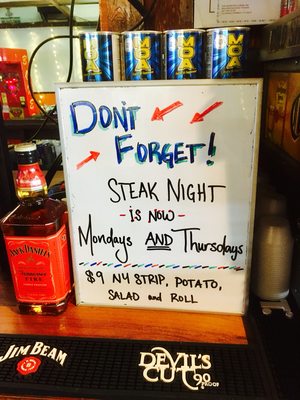 MOA MOA MOA MOA
DON'T
FORGET!
STEAK NIGHT
- is NOW -
Mondays AND Thursdays
$9 NY STRIP, POTATO,
SALAD and ROLL
JACK DANIEL'S
TENNESSEE
FIRE
JIM BEAM
DEVIL'S
CUT 90
PROOF